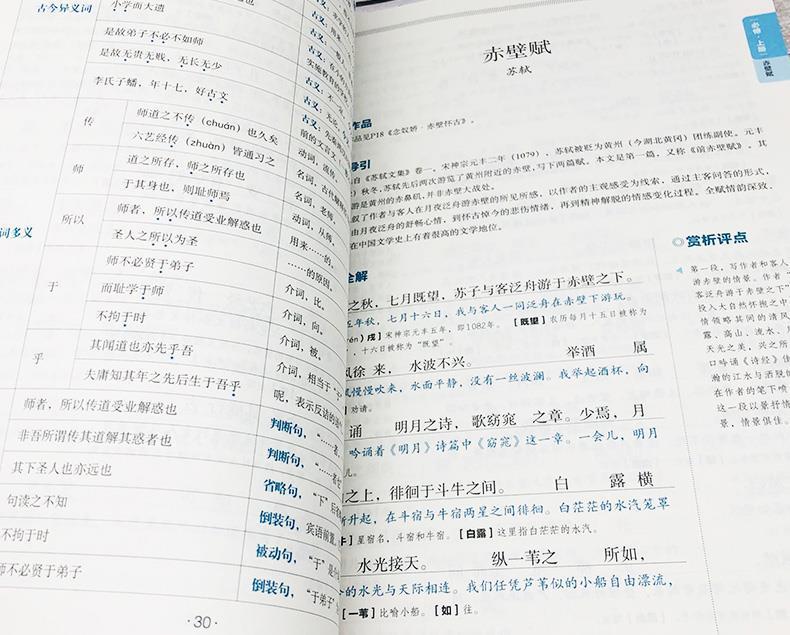 古今异义词
小学而大遗
是故弟子不必不如师
是故无贵无贱，无长无少
李氏子蟠，年十七，好古文
古义：
古义：
古义：
实施教育的学校
古义：不一
古义：无
古义：先秦两汉
前的文言文
词多义
传
师道之不传（chuán）也久矣
动词，流传
六艺经传（zhuàn）皆通习之
名词，古代解释
师
道之所存，师之所存也
名词，老师
于其身也，则耻师焉
动词，从师
所以
师者，所以传道受业解惑也
用来……的
圣人之所以为圣
……的原因。
于
师不必贤于弟子
介词，比。
而耻学于师
介词，向。
不拘于时
介词，被。
乎
其闻道也亦先乎吾
介词，相当于“
夫庸知其年之先后生于吾乎
呢，表示反诘的语气
师者，所以传道受业解惑也
判断句，“……者
非吾所谓传其道解其惑者也
判断句，“……者
其下圣人也亦远也
省略句，“下”后省
句读之不知
倒装句，宾语前置，
不拘于时
被动句，“于”是
师不必贤于弟子
倒装句，“于弟子”
·30·
必修·上册
赤壁赋
赤壁赋
苏轼
作品
品见P18《念奴娇·赤壁怀古》。
导引
自《苏轼文集》卷一。宋神宗元丰二年（1079），苏轼被贬为黄州（今湖北黄冈）团练副使。元丰
）秋冬，苏轼先后两次游览了黄州附近的赤壁，写下两篇赋。本文是第一篇，又称《前赤壁赋》。其
游是黄州的赤鼻矶，并非赤壁大战处。
叙了作者与客人在月夜泛舟游赤壁的所见所感，以作者的主观感受为线索，通过主客问答的形式，
由月夜泛舟的舒畅心情，到怀古悼今的悲伤情绪，再到精神解脱的情感变化过程。全赋情韵深致、
在中国文学史上有着很高的文学地位。
全解
之秋，七月既望，苏子与客泛舟游于赤壁之下。
五年秋，七月十六日，我与客人一同泛舟在赤壁下游玩。
rén）戌］宋神宗元丰五年，即1082年。［既望］农历每月十五日被称为
，十六日被称为“既望”。
风徐 来，水波不兴。 举酒 属
风慢慢吹来，水面平静，没有一丝波澜。我举起酒杯，向
劝请。
诵 明月之诗，歌窈窕 之章。少焉，月
吟诵着《明月》诗篇中《窈窕》这一章。一会儿，明月
儿。
之上，徘徊于斗牛之间。 白 露 横
升起，在斗宿与牛宿两星之间徘徊。白茫茫的水汽笼罩
牛］星宿名，斗宿和牛宿。［白露］这里指白茫茫的水汽。
水光接天。 纵一苇之 所如，
的水光与天际相连。我们任凭芦苇似的小船自由漂流，
［一苇］比喻小船。［如］往。
赏析评点
第一段，写作者和客人
游赤壁的情景。作者“
客泛舟游于赤壁之下”
投入大自然怀抱之中
情领略其间的清风
露、高山、流水、月
天光之美，兴之所
口吟诵《诗经》佳
瀚的江水与洒脱的
在作者的笔下喷
这一段以景抒情
景，情景俱佳。